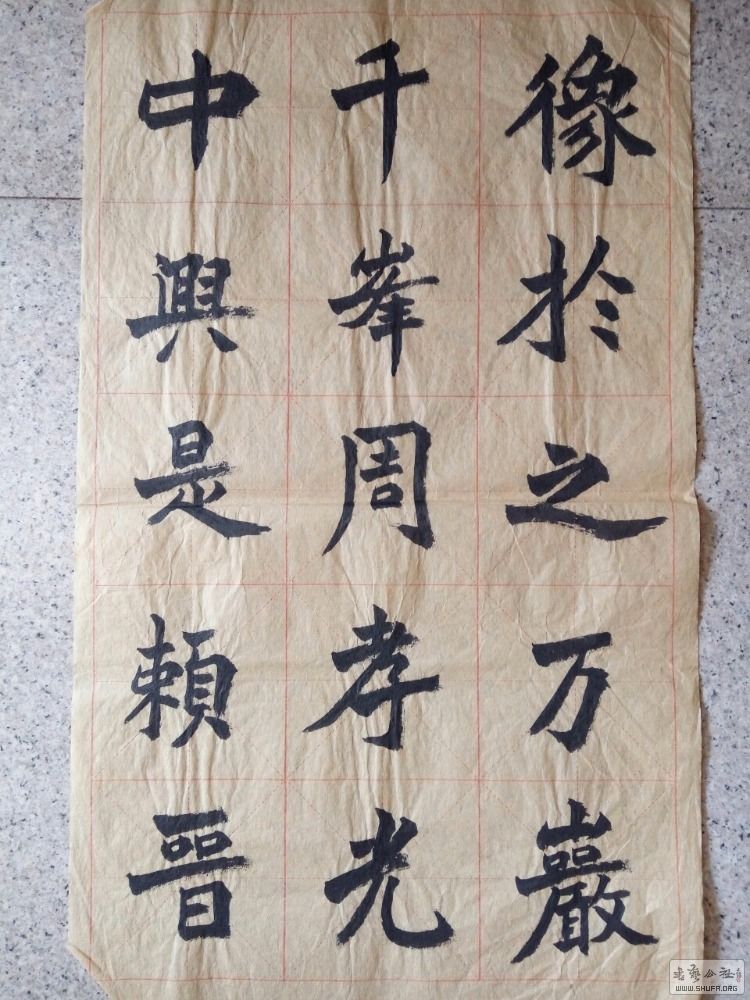 像於之万巖
千峯周孝光
中興是頼晉
书艺公社
WWW.SHUFA.ORG